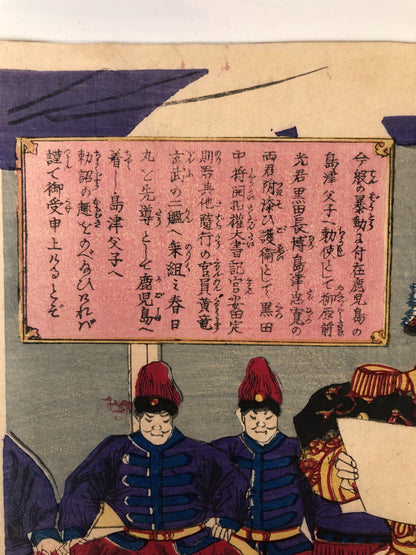 今般の暴動に付在鹿児島の
島津父子へ勅使として柳原前
光君黒田長博島津忠寛の
両君附添ひ護衛として黒田
中将開拓権大書記官安田定
則君其他随行の官員黄竜
玄武の二艦へ乗組ミ春日
丸を先導として鹿児島へ
着し島津父子へ
勅諚の趣をのべ給ひければ
謹で御受申上けるとぞ